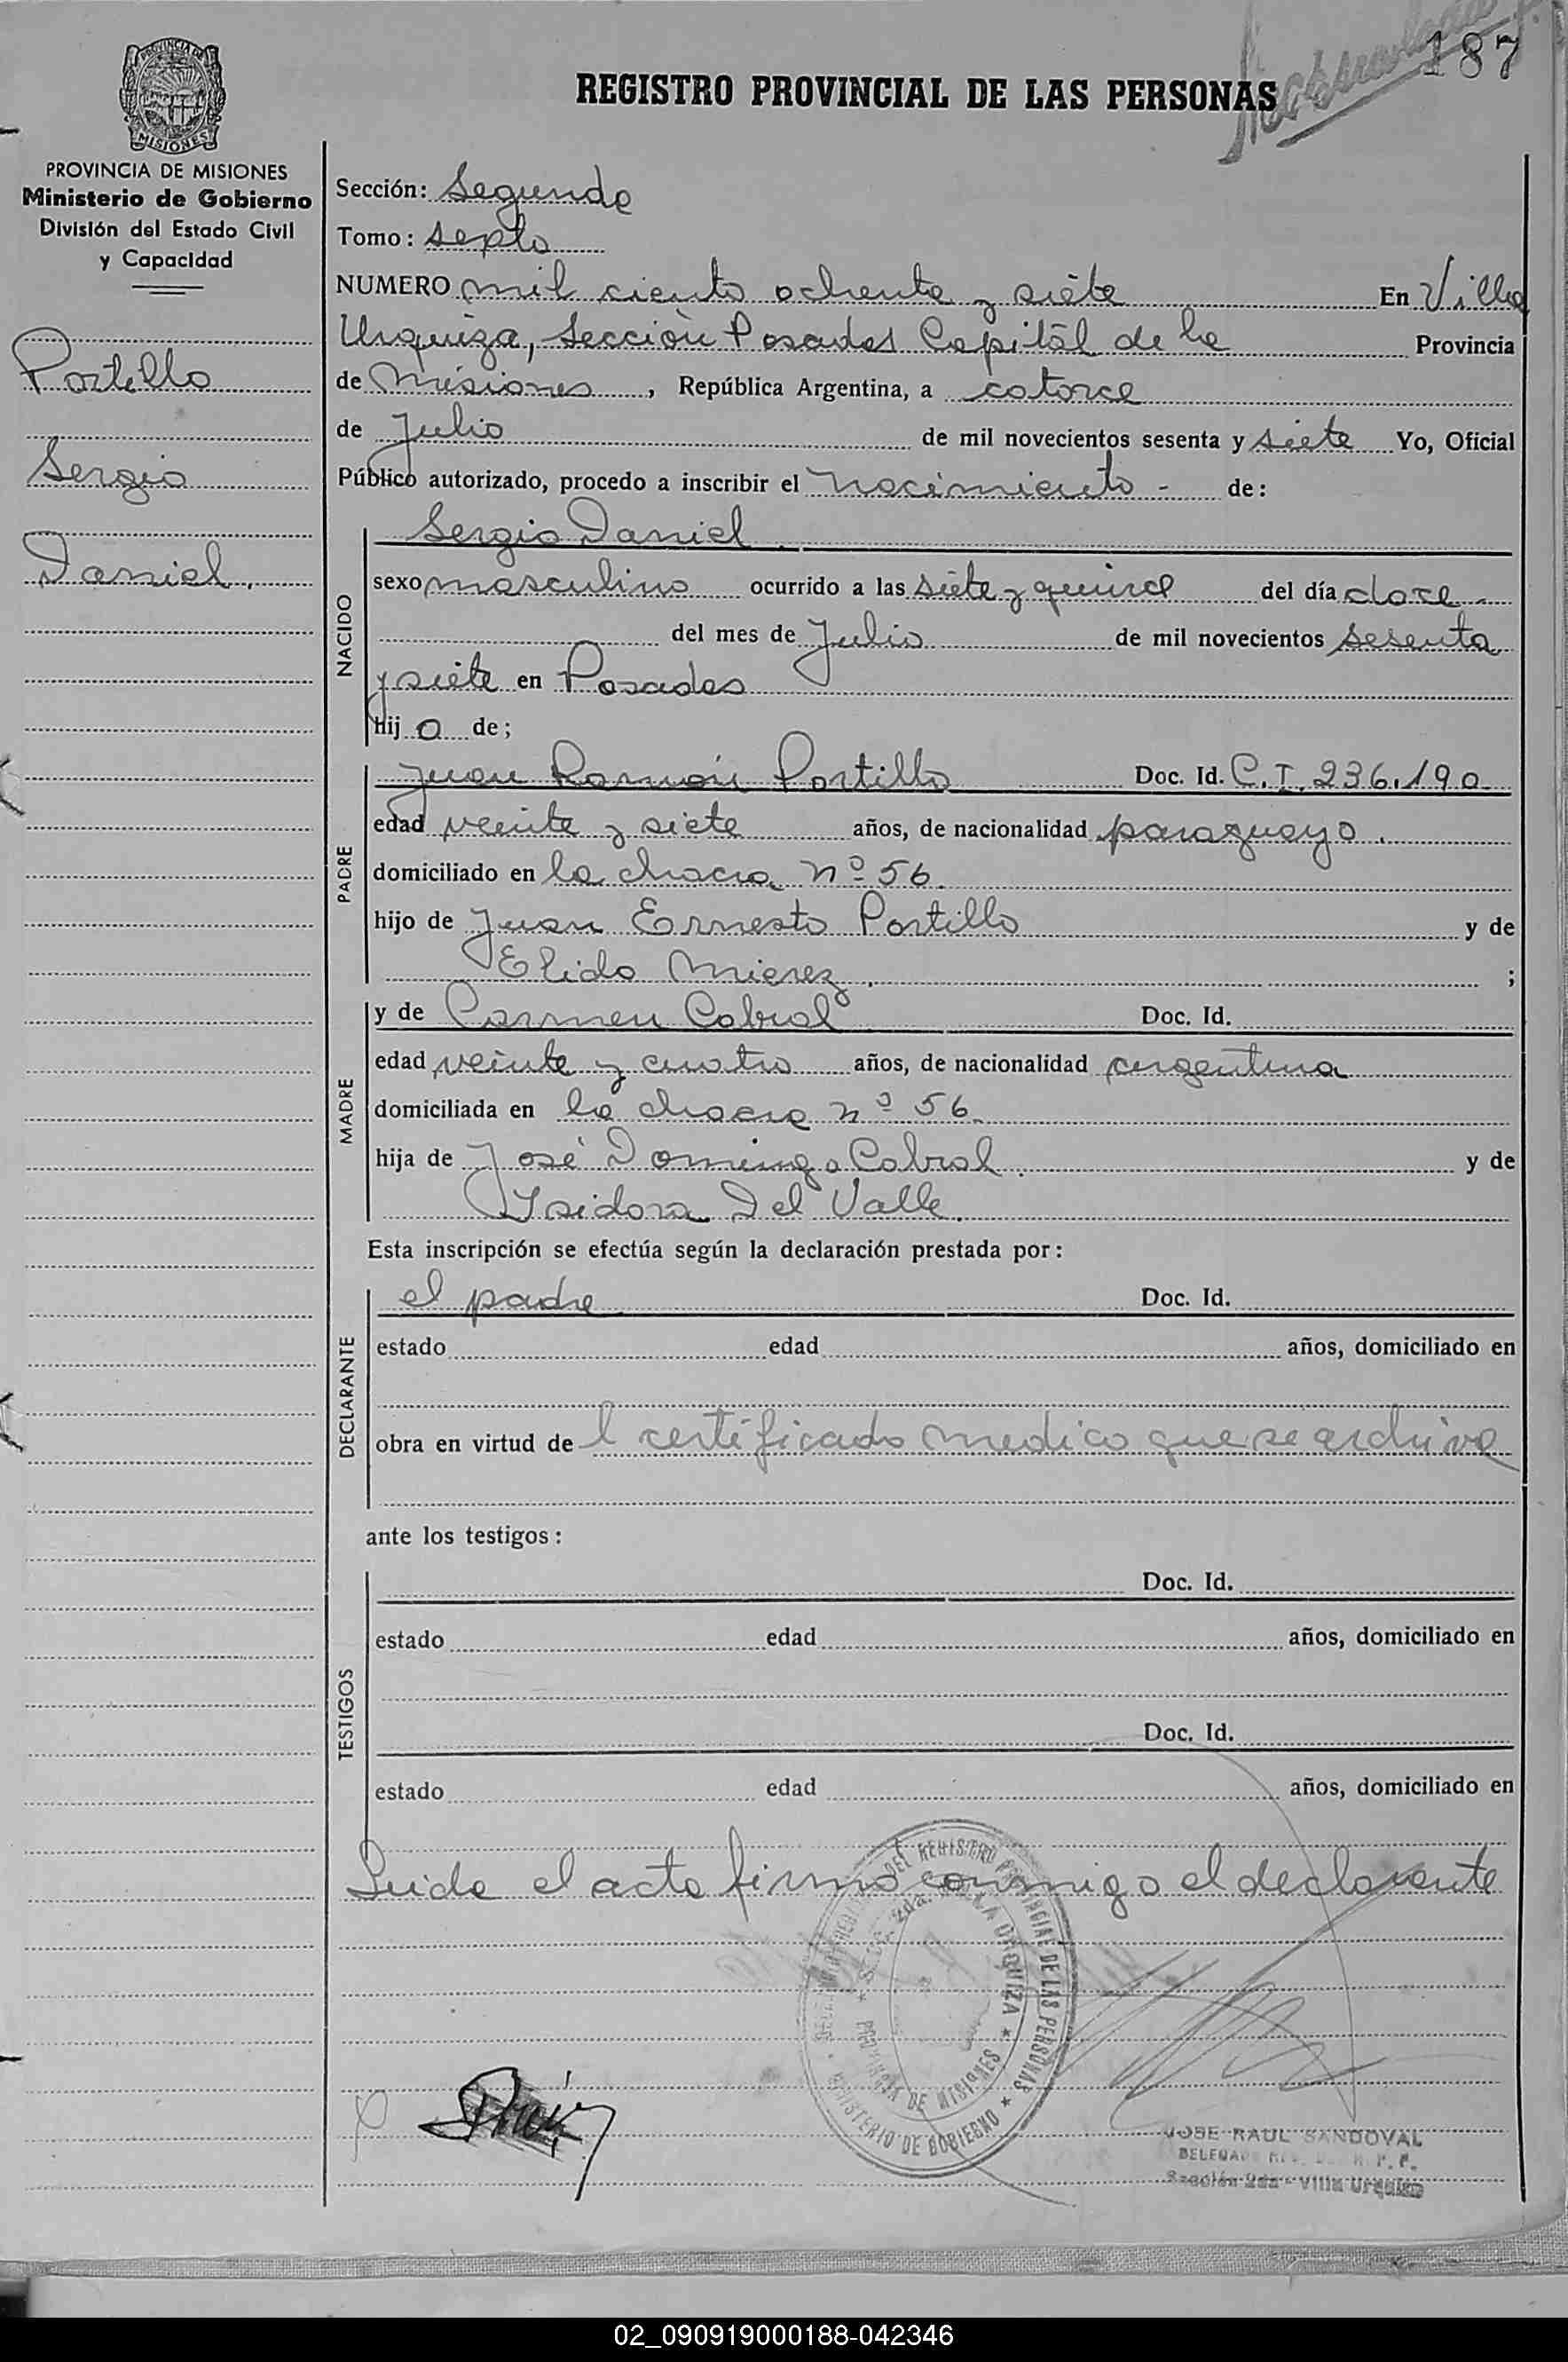 187
REGISTRO PROVINCIAL DE LAS PERSONAS
PROVINCIA DE MISIONES
MISIONES
PROVINCIA DE MISIONES
Ministerio de Gobierno
División del Estado Civil
y Capacidad
Portillo
Sergio
Daniel.
Sección: Segunda
Tomo: Septo
NUMERO mil ciento ochenta y siete En Villa
Urquiza, Sección Posadas Capital de la Provincia
de Misiones, República Argentina, a catorce
de Julio de mil novecientos sesenta y siete Yo, Oficial
Público autorizado, procedo a inscribir el nacimiento - de:
NACIDO
Sergio Daniel
sexo masculino ocurrido a las siete y quince del día doce -
del mes de Julio de mil novecientos sesenta
y siete en Posadas
hij o de;
PADRE
Juan Ramón Portillo Doc. Id. C.I. 236.190
edad veinte y siete años, de nacionalidad paraguayo.
domiciliado en la chacra nº 56.
hijo de Juan Ernesto Portillo y de
Elida Mierez. ;
MADRE
y de Carmen Cabral Doc. Id.
edad veinte y cuatro años, de nacionalidad argentina
domiciliada en la chacra nº 56.
hija de José Domingo Cabral. y de
Isidora Del Valle.
Esta inscripción se efectúa según la declaración prestada por:
DECLARANTE
el padre Doc. Id.
estado edad años, domiciliado en
obra en virtud de l certificado medico que se archiva
ante los testigos:
TESTIGOS
Doc. Id.
estado edad años, domiciliado en
Doc. Id.
estado edad años, domiciliado en
Leida el acta firma conmigo el declarante
DEL REGISTRO PROVINCIAL DE LAS PERSONAS
MINISTERIO DE GOBIERNO
2da. VILLA URQUIZA
PROVINCIA DE MISIONES
JOSE RAUL SANDOVAL
Sección 2da - Villa Urquiza
02_090919000188-042346